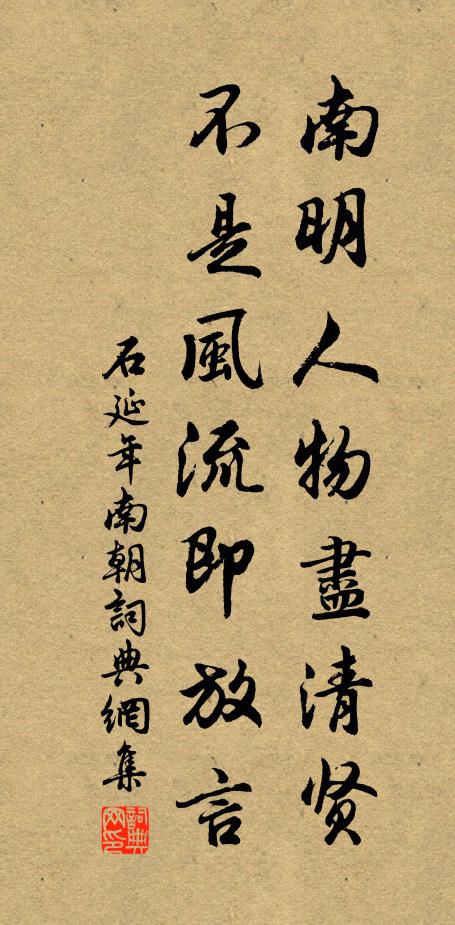 南明人物盡清贤
不是風流即放言
石延年南朝詞典網集
詞典网印